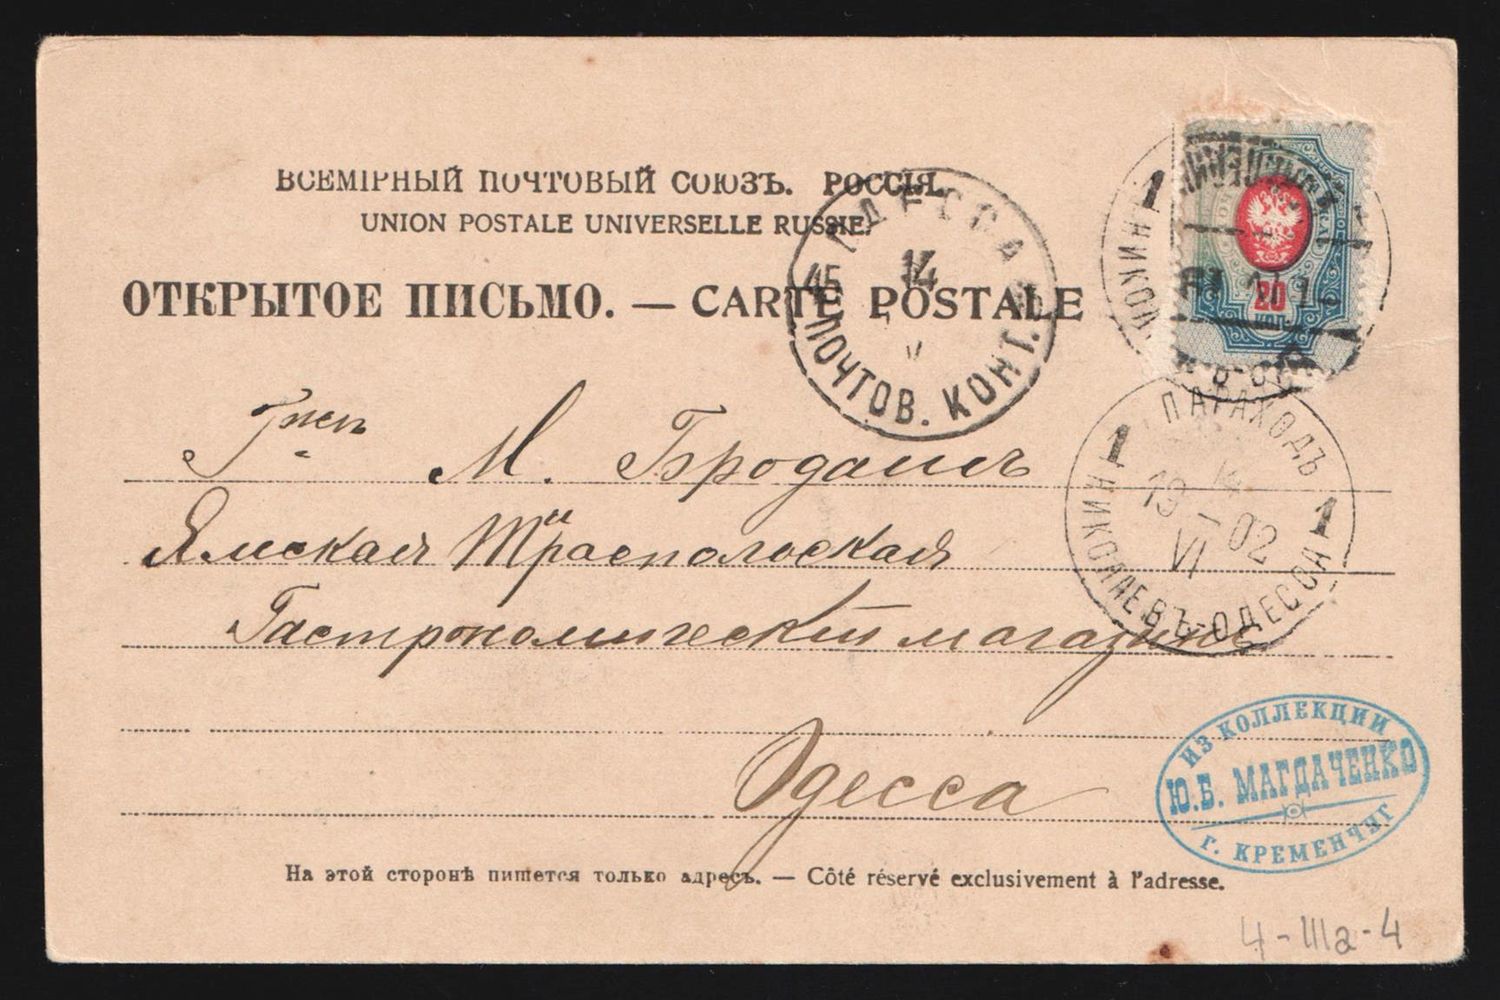 ВСЕМІРНЫЙ ПОЧТОВЫЙ СОЮЗЪ. РОССІЯ.
UNION POSTALE UNIVERSELLE RUSSIE.
ОТКРЫТОЕ ПИСЬМО. — CARTE POSTALE
ОДЕССА
14
45
ПОЧТОВ. КОНТ.
20
КОП
1 НИКОЛ
М. Бродский
Ямская Тираспольская
Гастрономическій магазинъ
Одесса
ПАРАХОДЪ
1 14 1
19 – 02
VI
НИКОЛАЕВЪ-ОДЕССА
ИЗ КОЛЛЕКЦИИ
Ю.Б. МАГДАЧЕНКО
Г. КРЕМЕНЧУГ
На этой сторонѣ пишется только адресъ. — Côté réservé exclusivement à l'adresse.
4-IIIa-4